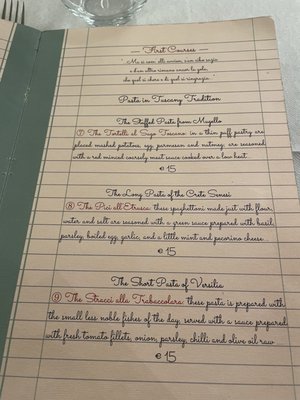 First Courses
"Ma si come elli avvien, s'un cibo sazia
e d'un altro rimane ancor la gola,
che quel si chere e di quel si ringrazia."
Pasta in Tuscany Tradition
The Stuffed Pasta from Mugello
⑦ The Tortelli al Sugo Toscano: in a thin puff pastry are
placed mashed potatoes, egg, parmesan and nutmeg, are seasoned
with a red minced coarsely meat sauce cooked over a low heat.
€ 15
The Long Pasta of the Crete Senesi
⑧ The Pici all'Etrusca: these spaghettoni made just with flour,
water and salt are seasoned with a green sauce prepared with basil,
parsley, boiled egg, garlic, and a little mint and pecorino cheese...
€ 15
The Short Pasta of Versilia
⑨ The Stracci alla Trabaccolara: these pasta is prepared with
the small less noble fishes of the day, served with a sauce prepared
with fresh tomato fillets, onion, parsley, chilli and olive oil raw.
€ 15